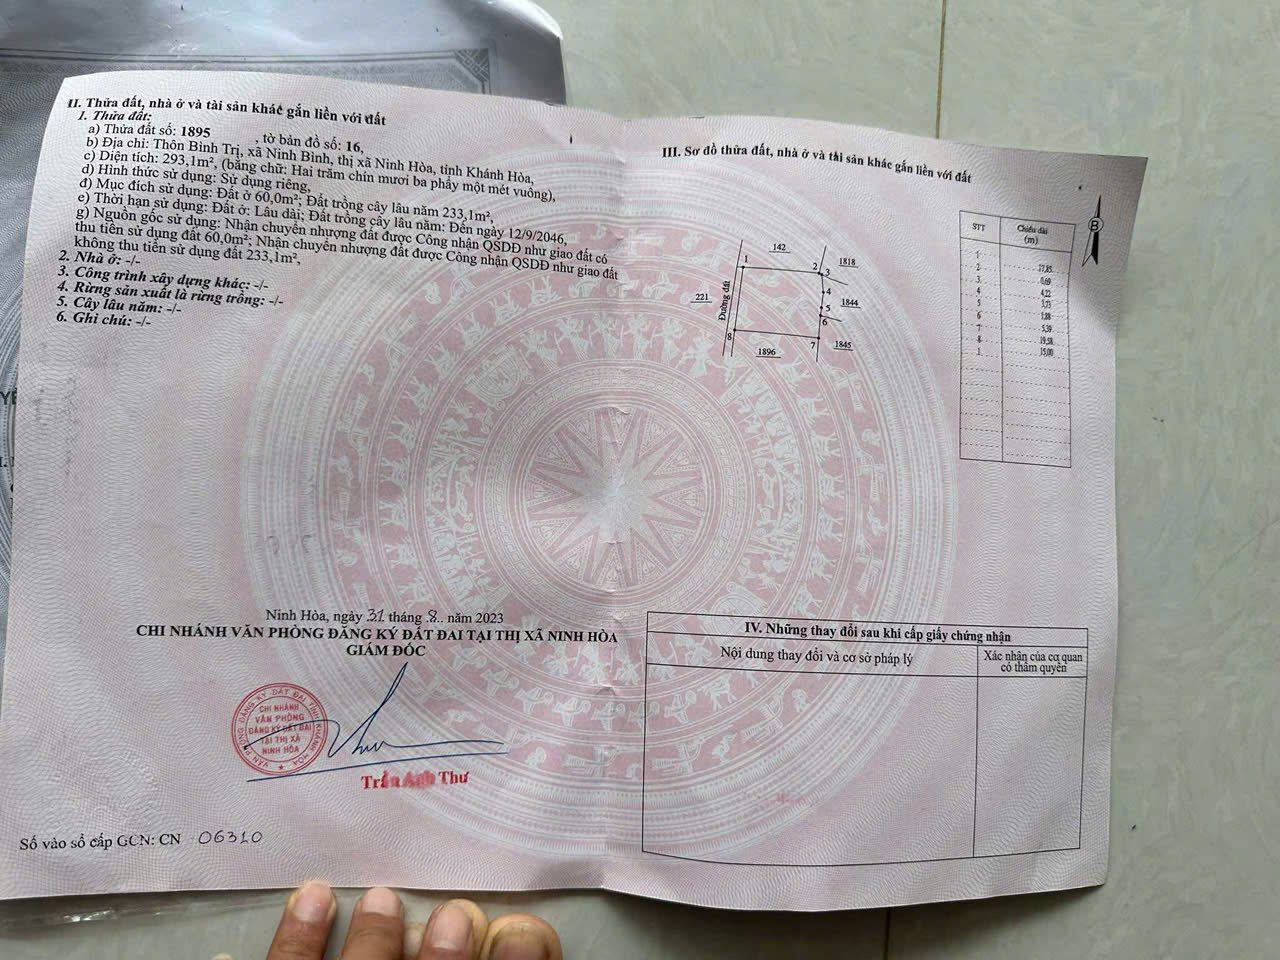 II. Thửa đất, nhà ở và tài sản khác gắn liền với đất
1. Thửa đất:
a) Thửa đất số: 1895 , tờ bản đồ số: 16,
b) Địa chỉ: Thôn Bình Trị, xã Ninh Bình, thị xã Ninh Hòa, tỉnh Khánh Hòa,
c) Diện tích: 293,1m², (bằng chữ: Hai trăm chín mươi ba phẩy một mét vuông),
d) Hình thức sử dụng: Sử dụng riêng,
đ) Mục đích sử dụng: Đất ở 60,0m²; Đất trồng cây lâu năm 233,1m²,
e) Thời hạn sử dụng: Đất ở: Lâu dài; Đất trồng cây lâu năm: Đến ngày 12/9/2046,
g) Nguồn gốc sử dụng: Nhận chuyển nhượng đất được Công nhận QSDĐ như giao đất có
thu tiền sử dụng đất 60,0m²; Nhận chuyển nhượng đất được Công nhận QSDĐ như giao đất
không thu tiền sử dụng đất 233,1m²,
2. Nhà ở: -/-
3. Công trình xây dựng khác: -/-
4. Rừng sản xuất là rừng trồng: -/-
5. Cây lâu năm: -/-
6. Ghi chú: -/-
Ninh Hòa, ngày 31 tháng 8.. năm 2023
CHI NHÁNH VĂN PHÒNG ĐĂNG KÝ ĐẤT ĐAI TẠI THỊ XÃ NINH HÒA
GIÁM ĐỐC
VĂN PHÒNG ĐĂNG KÝ ĐẤT ĐAI TỈNH KHÁNH HÒA
CHI NHÁNH
VĂN PHÒNG
ĐĂNG KÝ ĐẤT ĐAI
TẠI THỊ XÃ
NINH HÒA
Trần Anh Thư
Số vào sổ cấp GCN: CN 06310
III. Sơ đồ thửa đất, nhà ở và tài sản khác gắn liền với đất
B
142
1
2
3
1818
4
221
Đường đất
5
1844
6
8
7
1845
1896
STT Chiều dài
(m)
1
2 17,85
3 0,69
4 4,22
5 3,73
6 1,88
7 5,39
8 19,58
1 15,00
IV. Những thay đổi sau khi cấp giấy chứng nhận
Nội dung thay đổi và cơ sở pháp lý Xác nhận của cơ quan
có thẩm quyền